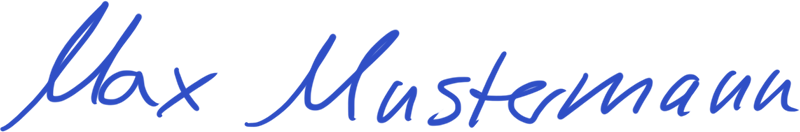 Max Mustermann